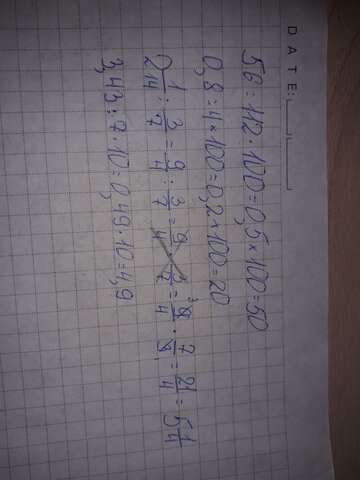 DATE:
56 : 112 · 100 = 0,5 × 100 = 50
0,8 : 4 × 100 = 0,2 × 100 = 20
2 1/4 : 3/7 = 9/4 : 3/7 = 9/4 · 7/4 = 9/4 · 7/3 = 21/4 = 5 1/4
3,43 : 7 · 10 = 0,49 · 10 = 4,9